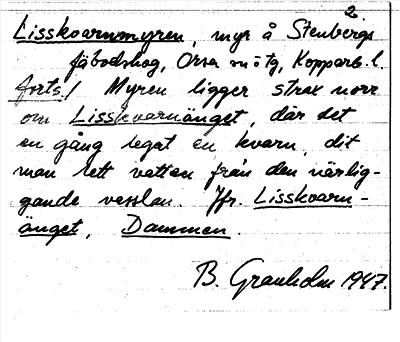 2.
Lisskvarnmyren, myr å Stenbergs
fäbodskog, Orsa sn o tg, Kopparb. l.
forts./ Myren ligger strax norr
om Lisskvarnänget, där det
en gång legat en kvarn, dit
man lett vatten från den närlig-
gande vesslan. Jfr. Lisskvarn-
änget, Dammen.
B. Granholm 1947.